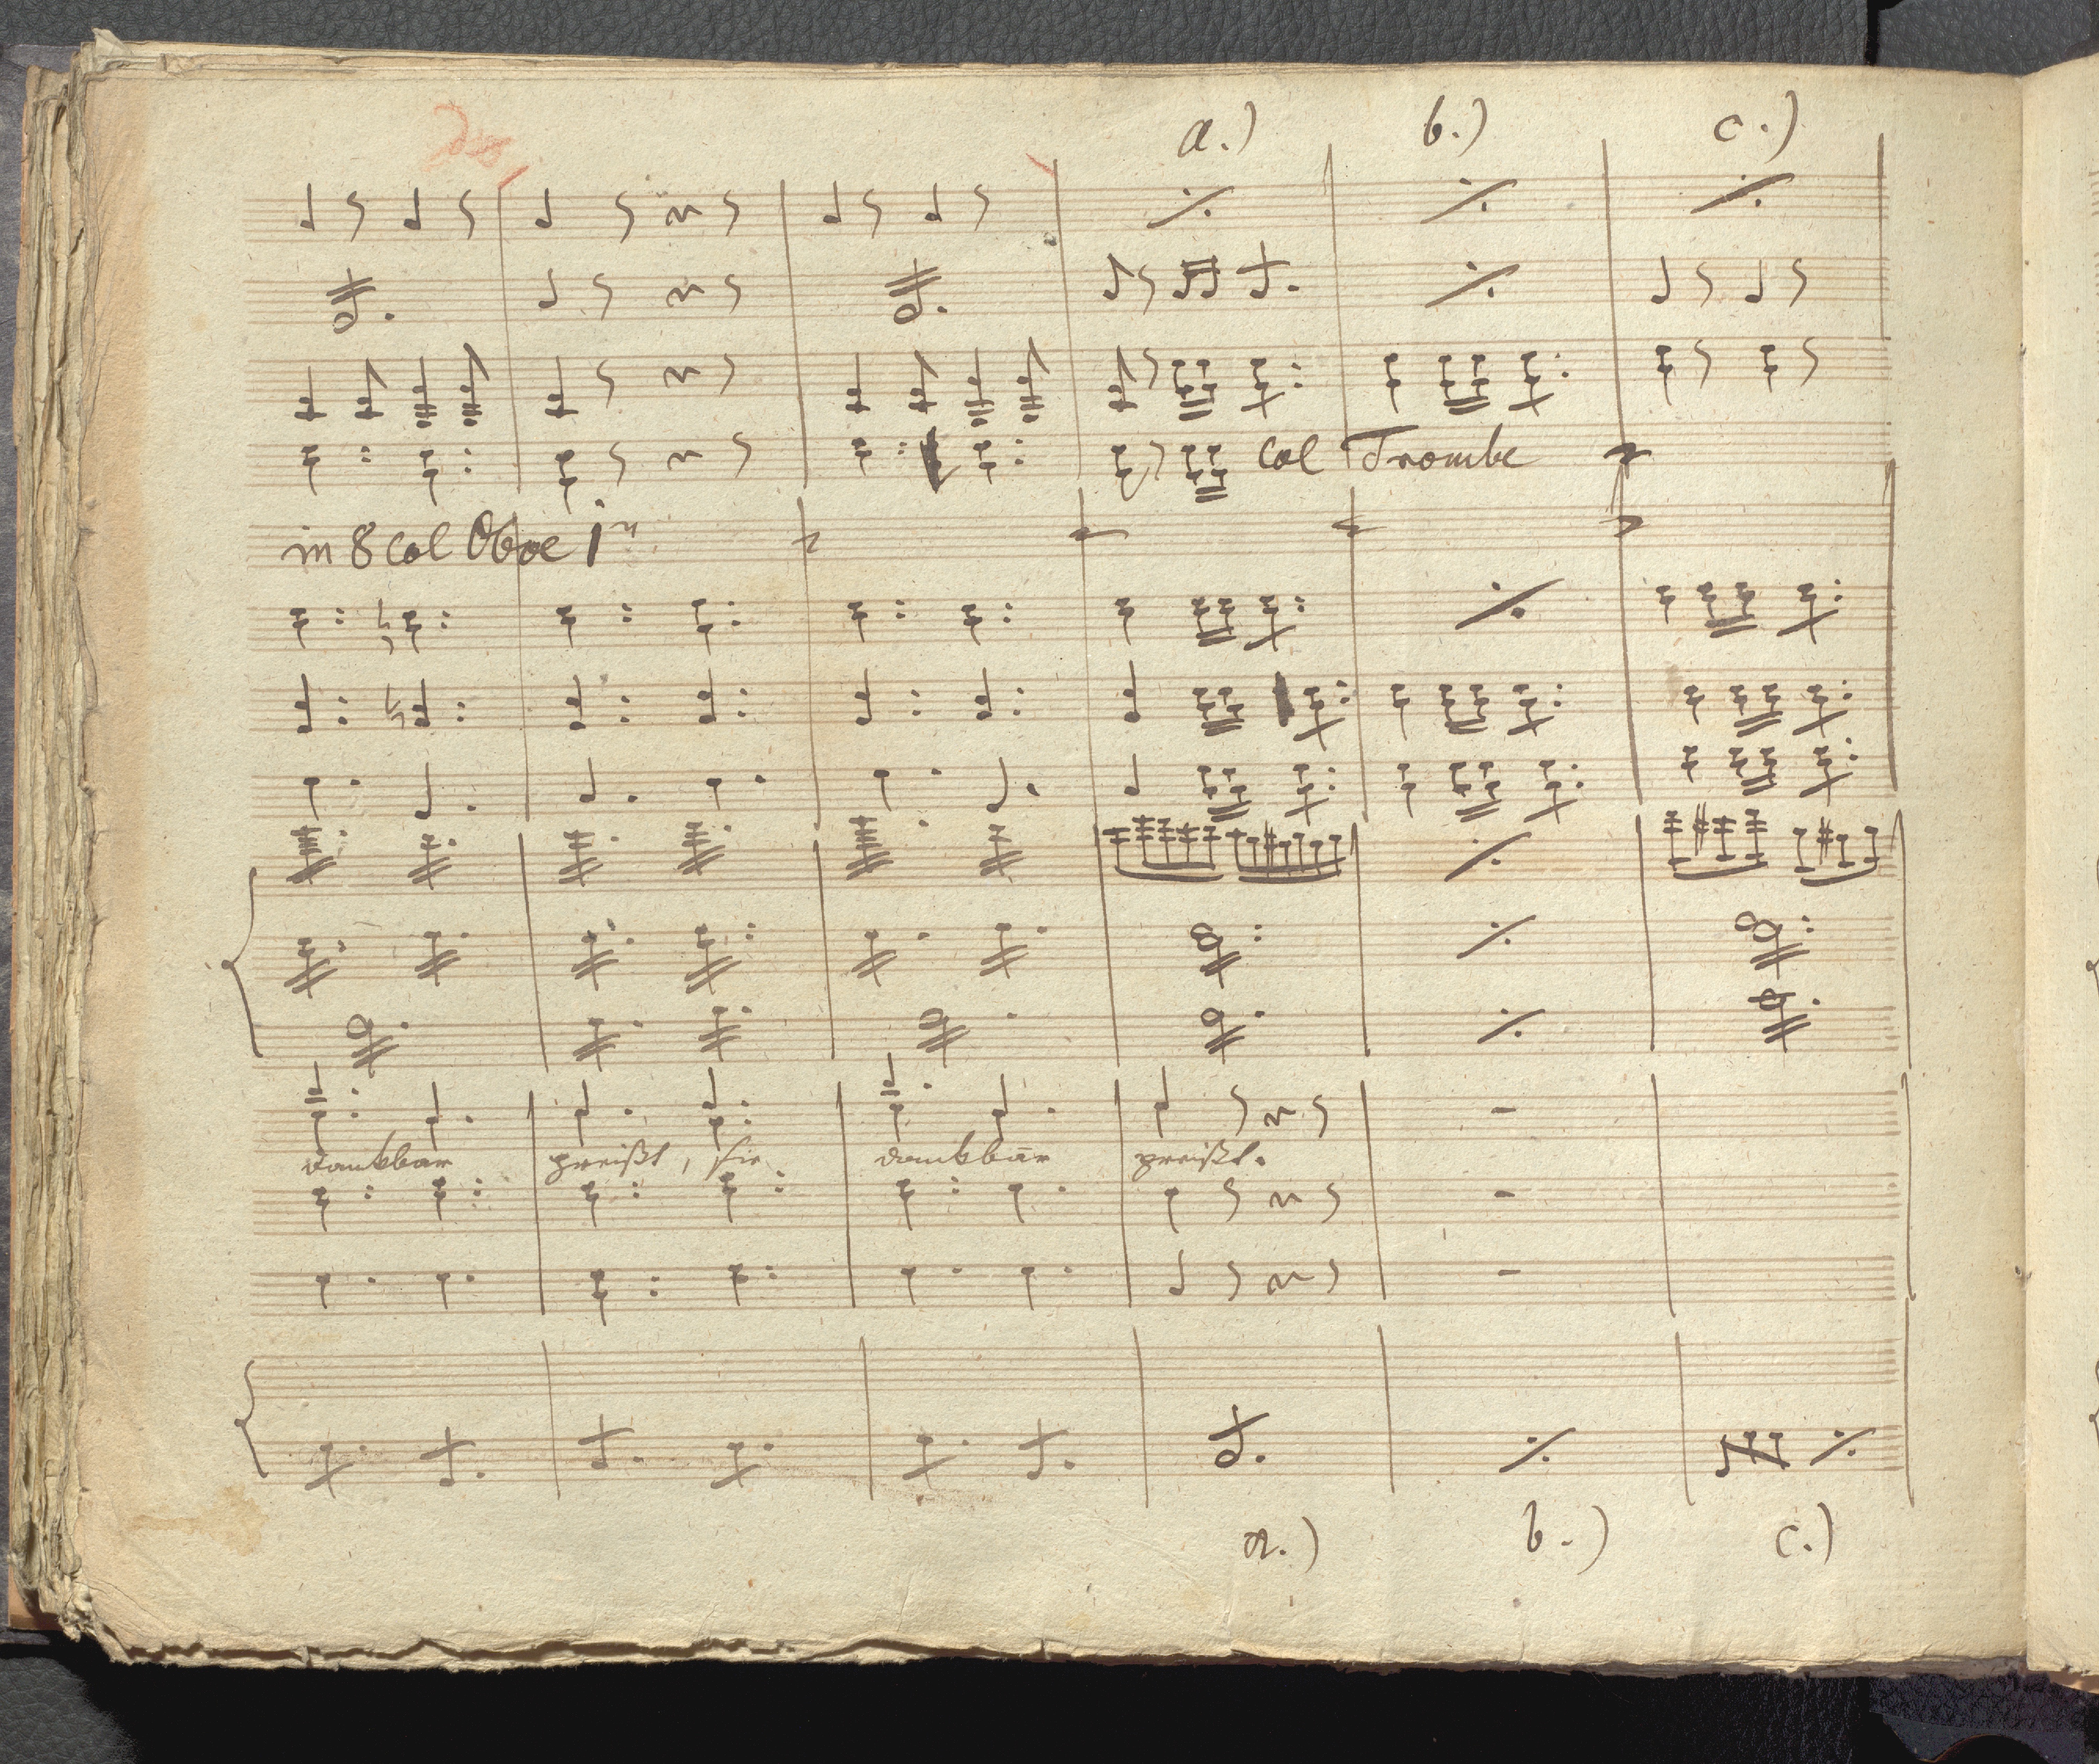 a.) b.) c.)
col Trombe
in 8 col Oboe 1mo
dankbar preißt, sie dankbar preißt.
a.) b.) c.)